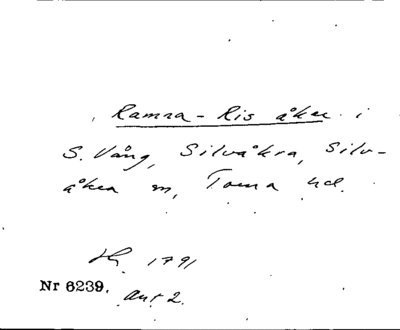 Ramna-Ris åker i
S. Vång, Silvåkra, Silv-
åkra sn, Torna hd.
1791
Nr 6239.